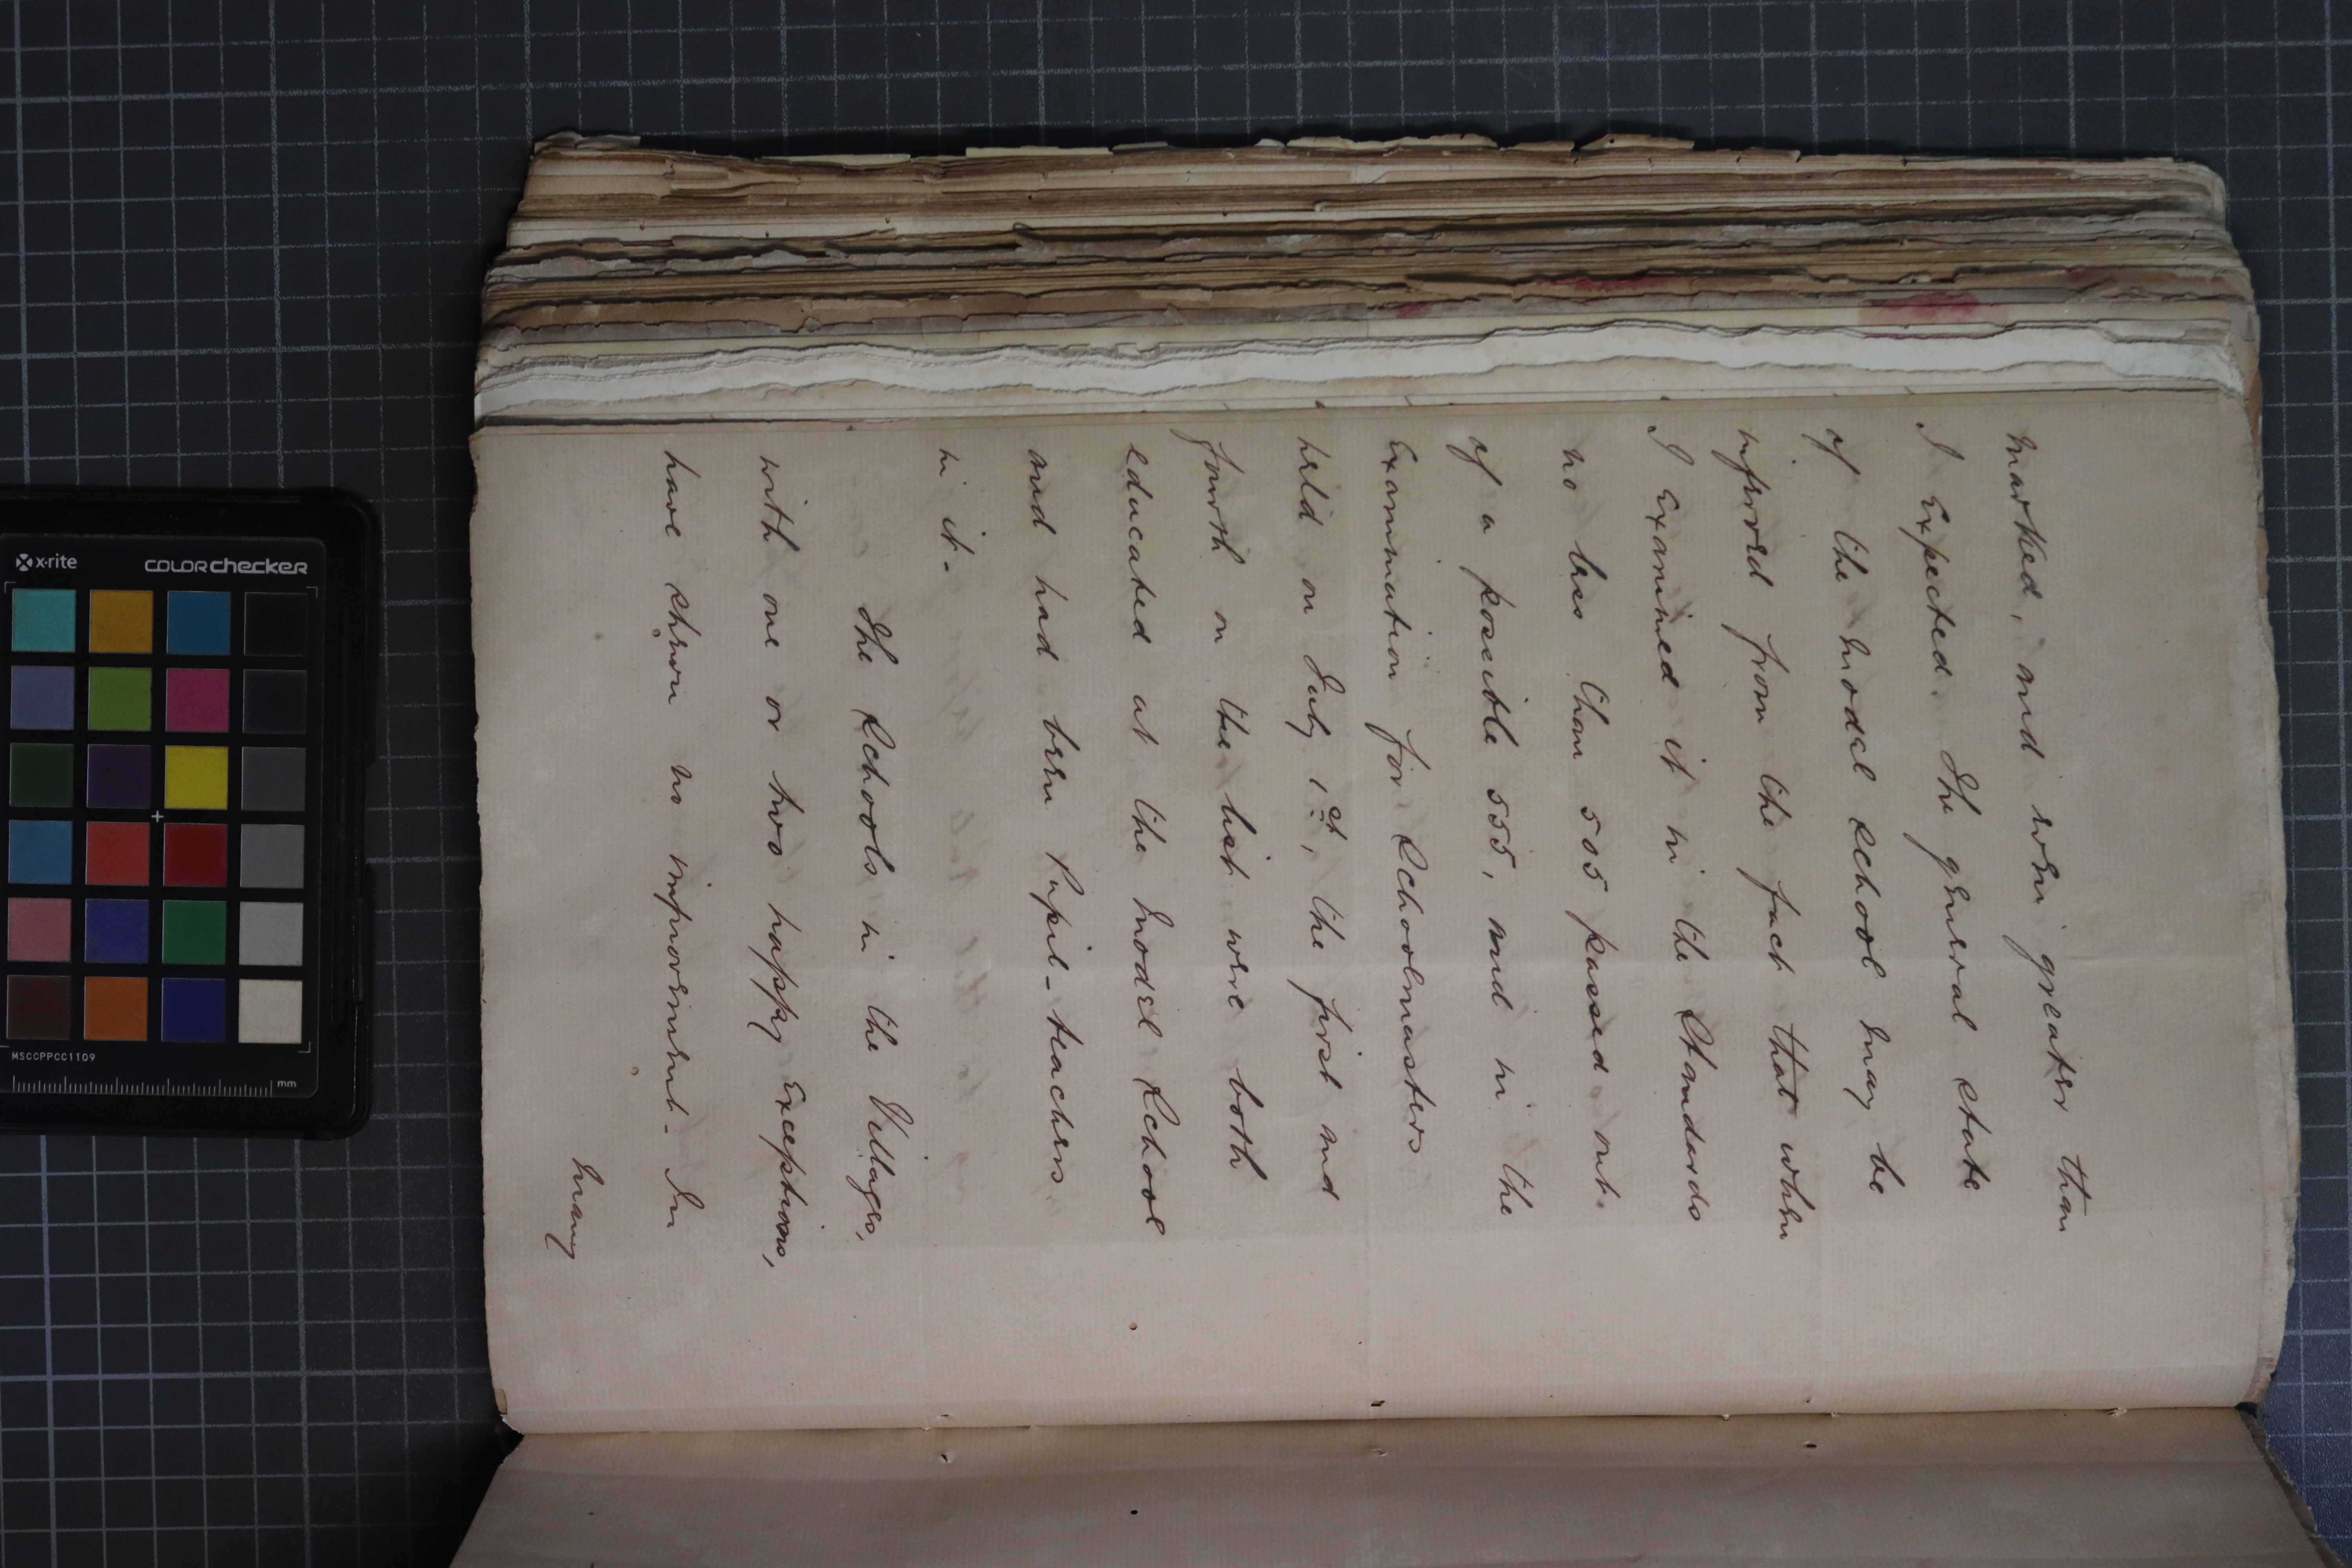 marked, and even greater than
I Expected. The general state
of the Model School may be
inferred from the fact that when
I Examined it in the Standards
no less than 505 passed out
of a possible 555, and in the
Examination for Schoolmasters
held on July 1st, the first and
fourth on the list were both
educated at the Model School
and had been Pupil-teachers
in it.
The Schools in the Villages,
with one or two happy Exceptions,
have shown no improvement. In
many
x·rite colorchecker
MSCCPPCC1109
mm